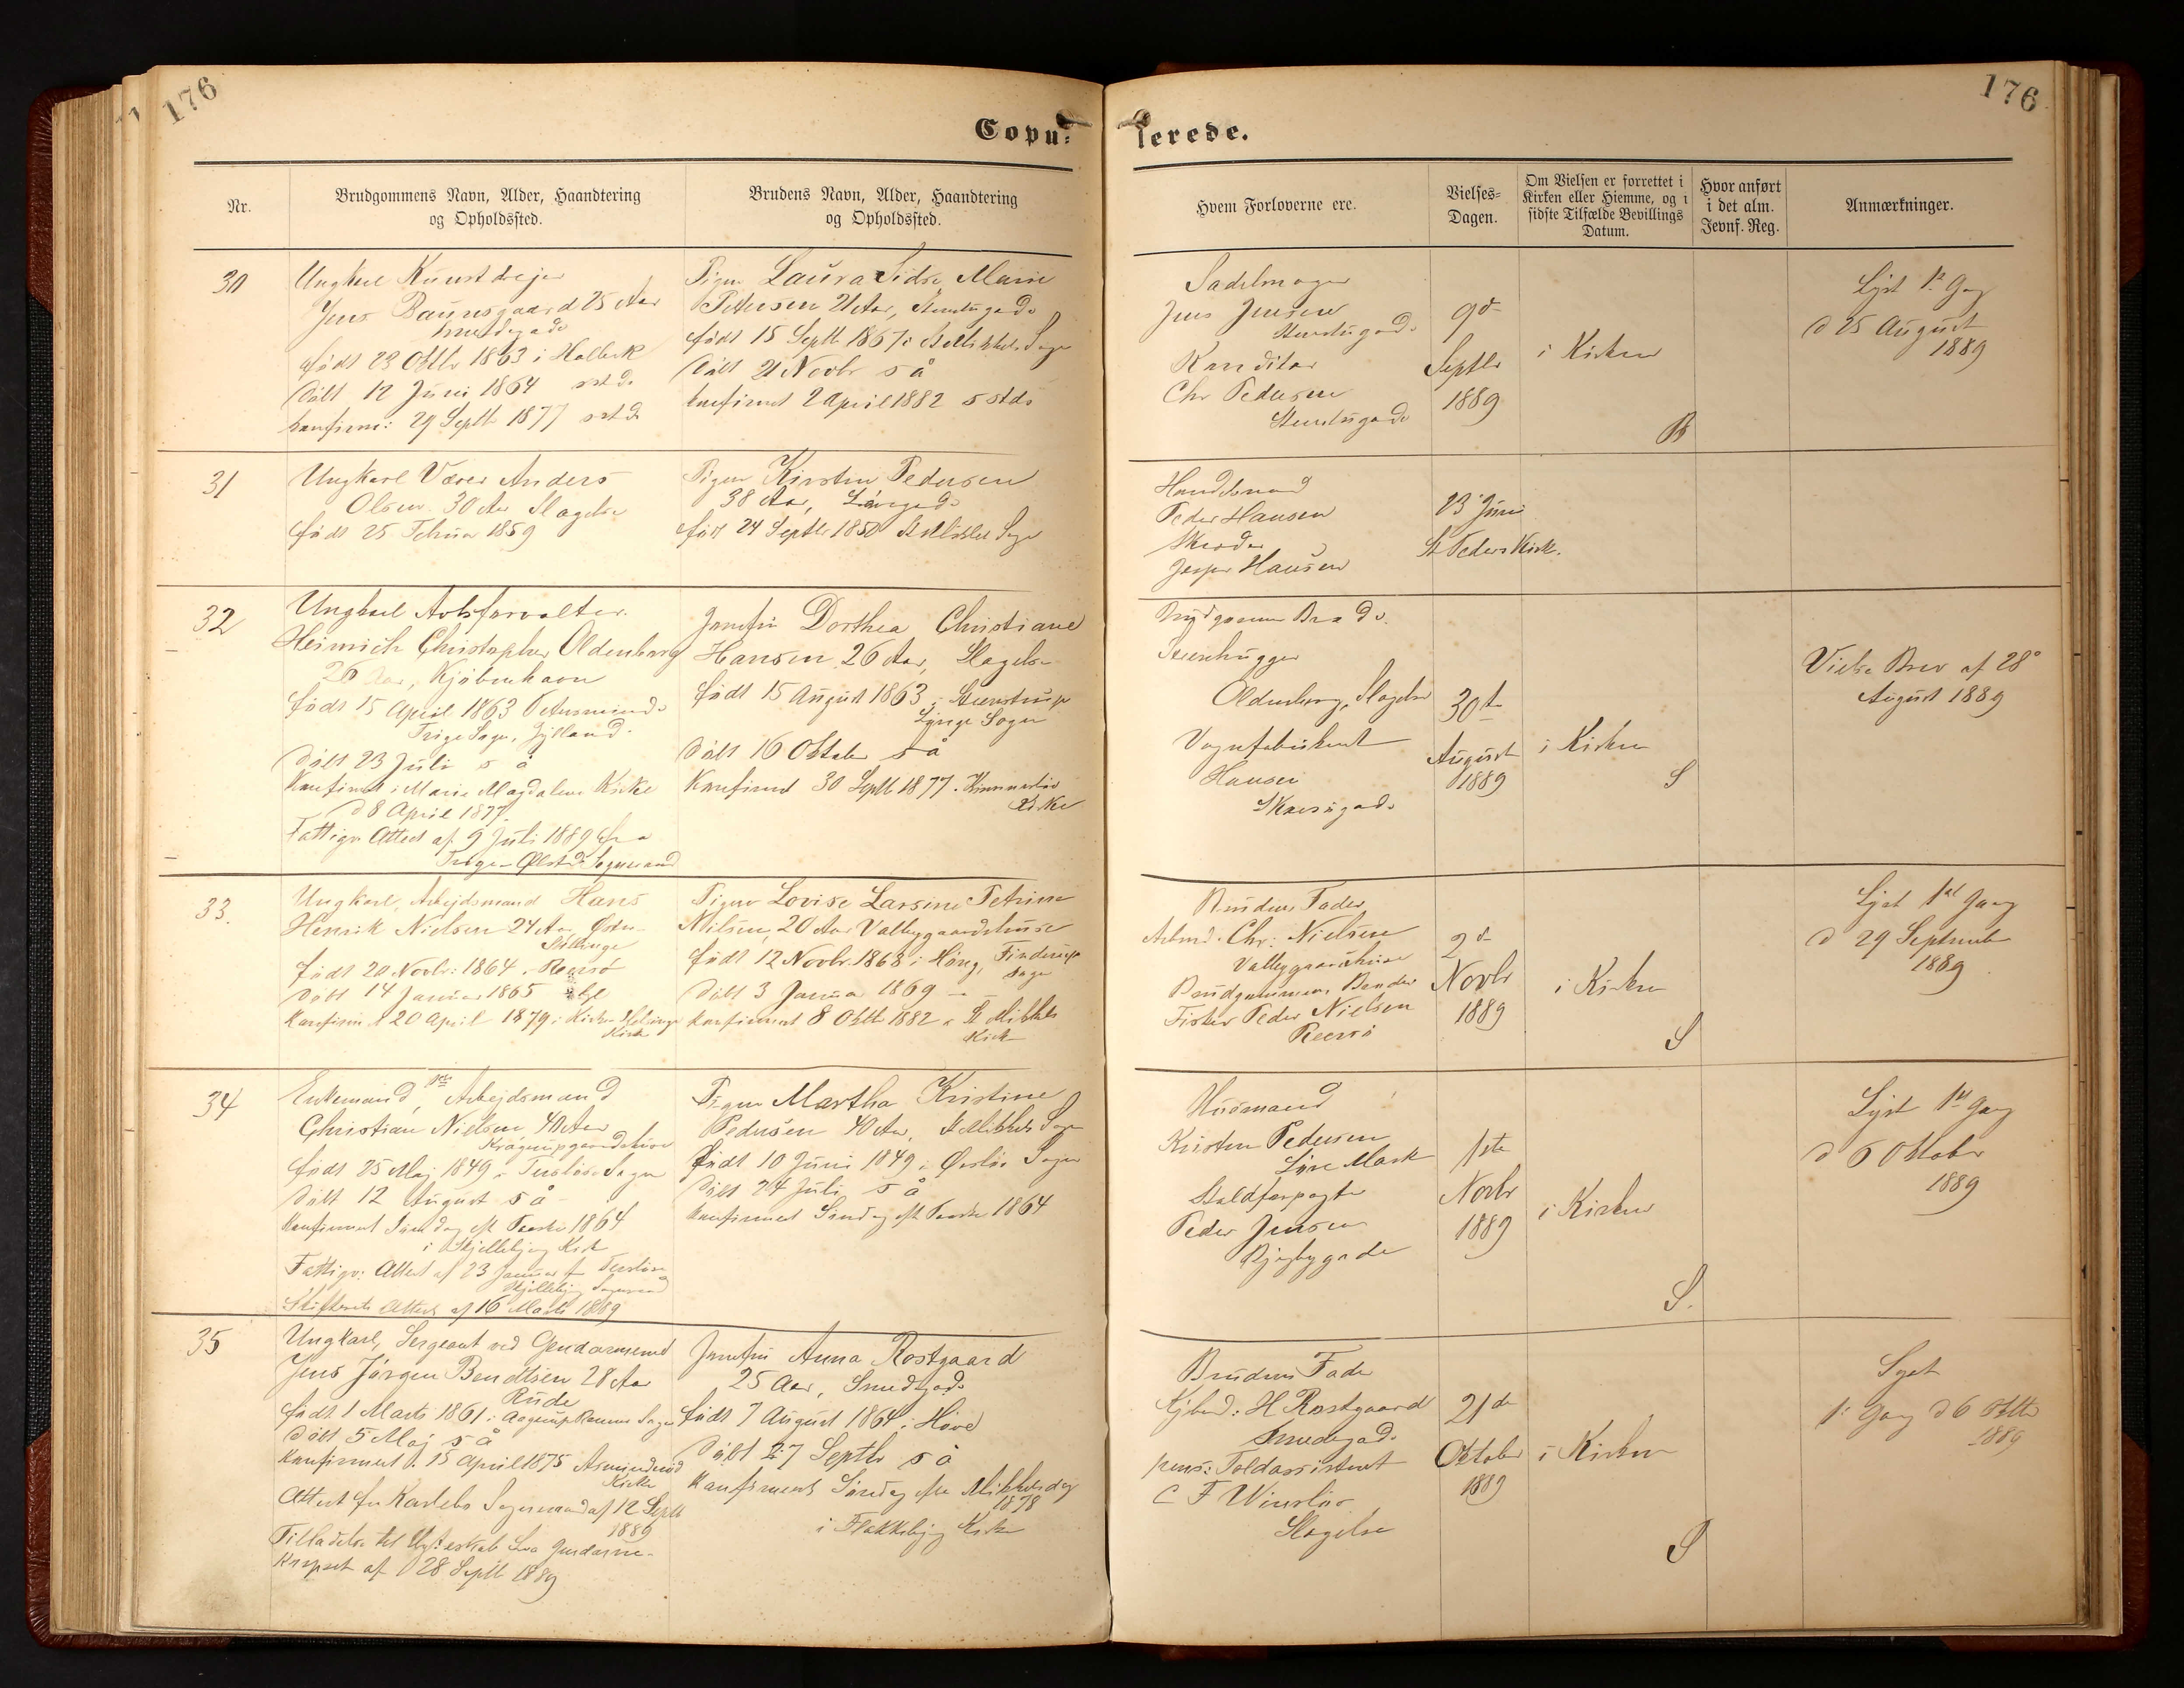 176
176
Copu=
lerede.
Nr.
Brudgommens Navn, Alder, Haandtering
og Opholdssted.
Brudens Navn, Alder, Haandtering
og Opholdssted.
Hvem Forloverne ere.
Vielses=
Dagen.
Om Vielsen er forrettet i
Kirken eller Hiemme, og i
sidste Tilfælde Bevillings
Datum.
Hvor anført
i det alm.
Jevnf. Reg.
Anmærkninger.
30
Ungkarl Kunstdrejer
Jens Baunsgaard 25 Aar
Smedegade
født 23 Oktbr 1863 i Holbæk
Døbt 12 Juni 1864
konfirm: 29 Septb 1877
Pigen Laura Marie
Petersen 21 Aar, Stenstugade
født 15 Septb 1867 i St Mikkels Sogn
Døbt 21 Novbr s å
konfirmet 2 April 1882 s stds
Sadelmager
Jens Jensen
Stenstugade
Konditor
Chr Pedersen
Stenstugade
9de
Septbr
1889
i Kirken
B
Lyst 1ste Gang
d 25 August
1889
31
Ungkarl Væver Anders
Olsen 30 Aar Slagelse
født 25 Februar 1859
Pigen Kirsten Pedersen
38 Aar,
født 24 Septbr 1850 St Mikkels Sogn
Handelsmand
Peder Hansen
Skræder
Jesper Hansen
23 Juni
St Peders Kirk.
32
Ungkarl Avlsforvalter
Heinrich Christopher Oldenburg
26 Aar, Kjøbenhavn
født 15 April 1863
Trige Sogn, Jylland.
Døbt 23 Juli s å
Konfirmet i Maria Magdalene Kirke
d 8 April 1877.
Fattigv. Attest af 9 Juli 1889 fra
Trige-Ølsted Sogneraad
Jomfru Dorthea Christiane
Hansen 26 Aar, Slagelse
født 15 August 1863 i Stenstrup
Lynge Sogn
Døbt 16 Oktober s å
Konfirmet 30 Septb 1877
Kirke
Brudgommens Broder
Stenhugger
Oldenburg, Slagelse
Vognfabrikant
Hansen
30te
August
1889
i Kirken
S
Vielse Brev af 28de
August 1889
33.
Ungkarl, Arbejdsmand Hans
Henrik Nielsen 24 Aar Øster
Stillinge
født 20 Novbr: 1864 i Reersø
Døbt 14 Januar 1865
Konfirmet 20 April 1879 i
Kirke
Pigen Lovise Larsine Petrine
Nilsen, 20 Aar Valbygaardshuse
født 12 Novbr. 1868 i Høng, Finderup
Sogn
Døbt 3 Januar 1869
konfirmet 8 Oktb 1882 i St Mikkels
Kirke
Brudens Fader
Arbmd. Chr: Nielsen
Valbygaardshuse
Brudgommens Broder
Fisker Peder Nielsen
Reersø
2de
Novbr
1889
i Kirken
S
Lyst 1ste Gang
d 29 September
1889
34
Enkemand, Arbejdsmand
Christian Nielsen 40 Aar
født 25 Maj 1849 i Terslose Sogn
Døbt 12 August s å
Konfirmet Søndag eft Paaske 1864
i Skjellebjerg Kirk
Fattigv: Attest af 23 Januar fra Terslose
Skjellebjerg Sogneraad
Skifterets Attest af 16 Marts 1889
Pigen Martha Kristine
Pedersen 40 Aar, St Mikkels Sogn
født 10 Juni 1849 i Ørslev Sogn
Døbt 24 Juli s å
konfirmet Søndag eft Paaske 1864
Husmand
Kristen Pedersen
Mark
Staldforpagter
Peder Jensen
Bjergbygade
1ste
Novbr
1889
i Kirken
S.
Lyst 1ste Gang
d 6 Oktober
1889
35
Ungkarl, Sergeant ved Gendarmeriet
Jens Jørgen Bendtsen 28 Aar
Rude
født 1 Marts 1861 i Sogn
Døbt 5 Maj s å
Konfirmet d. 15 April 1875 Asminderød
Kirke
Attest fra Karlebo Sogneraad af 12 Septb
1889
Tilladelse til Ægteskab fra Gendarme-
Korpset af 28 Septb 1889
Jomfru Anna Rostgaard
25 Aar, Smedegade
født 7 August 1864 i Hove
Døbt 27 Septbr s å
Konfirmeret Søndag efter Mikkelsdag
1878
i Flakkebjerg Kirke
Brudens Fader
Kjbmd: H Rostgaard
Smedegade
pens: Toldassistent
C F Winsløv
Slagelse
21de
Oktober
1889
i Kirken
S
Lyst
1' Gang d 6 Oktb
1889